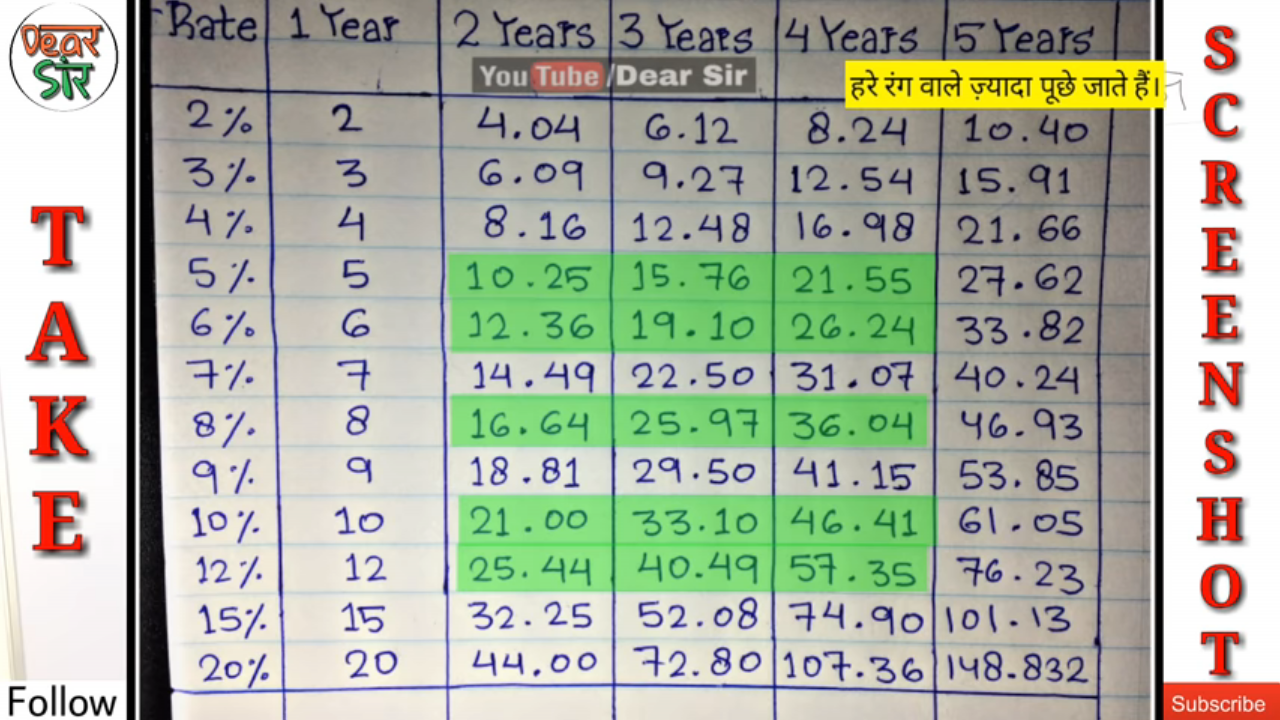 Dear
सर
TAKE
Follow
Rate 1 Year 2 Years 3 Years 4 Years 5 Years
YouTube/Dear Sir
हरे रंग वाले ज़्यादा पूछे जाते हैं।
2% 2 4.04 6.12 8.24 10.40
3% 3 6.09 9.27 12.54 15.91
4% 4 8.16 12.48 16.98 21.66
5% 5 10.25 15.76 21.55 27.62
6% 6 12.36 19.10 26.24 33.82
7% 7 14.49 22.50 31.07 40.24
8% 8 16.64 25.97 36.04 46.93
9% 9 18.81 29.50 41.15 53.85
10% 10 21.00 33.10 46.41 61.05
12% 12 25.44 40.49 57.35 76.23
15% 15 32.25 52.08 74.90 101.13
20% 20 44.00 72.80 107.36 148.832
SCREENSHOT
Subscribe